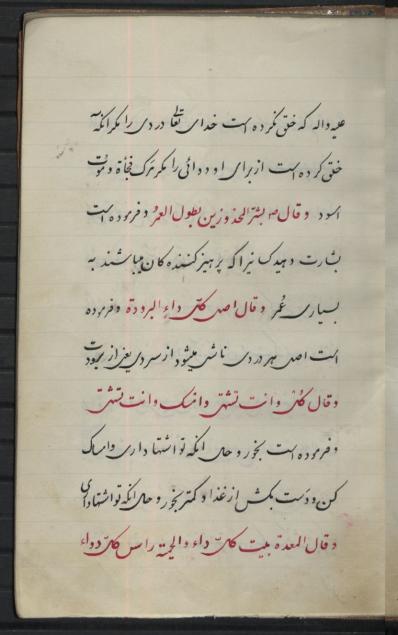 علیه واله که خلق نکرده است خدای تعالی دردی را مگر انکه
خلق کرده است از برای او دوائی را مگر مرک فجاة و موت
اسود وقال ص بشر المحذورین بطول العمر و فرموده است
بشارت دهید کسانیرا که پرهیز کننده کان میباشند به
بسیاری عمر وقال اصل کل داء البرودة و فرموده
است اصل هر دردی ناشی میشود از سردی یعنی از برودت
وقال کل وانت تشتهی وامسک وانت تشتهی
و فرموده است بخور و حال انکه تو اشتها داری وامساک
کن و دست بکش از غذا و کمتر بخور و حال انکه تو اشتها داری
وقال المعدة بیت کل داء والحمیة راس کل دواء